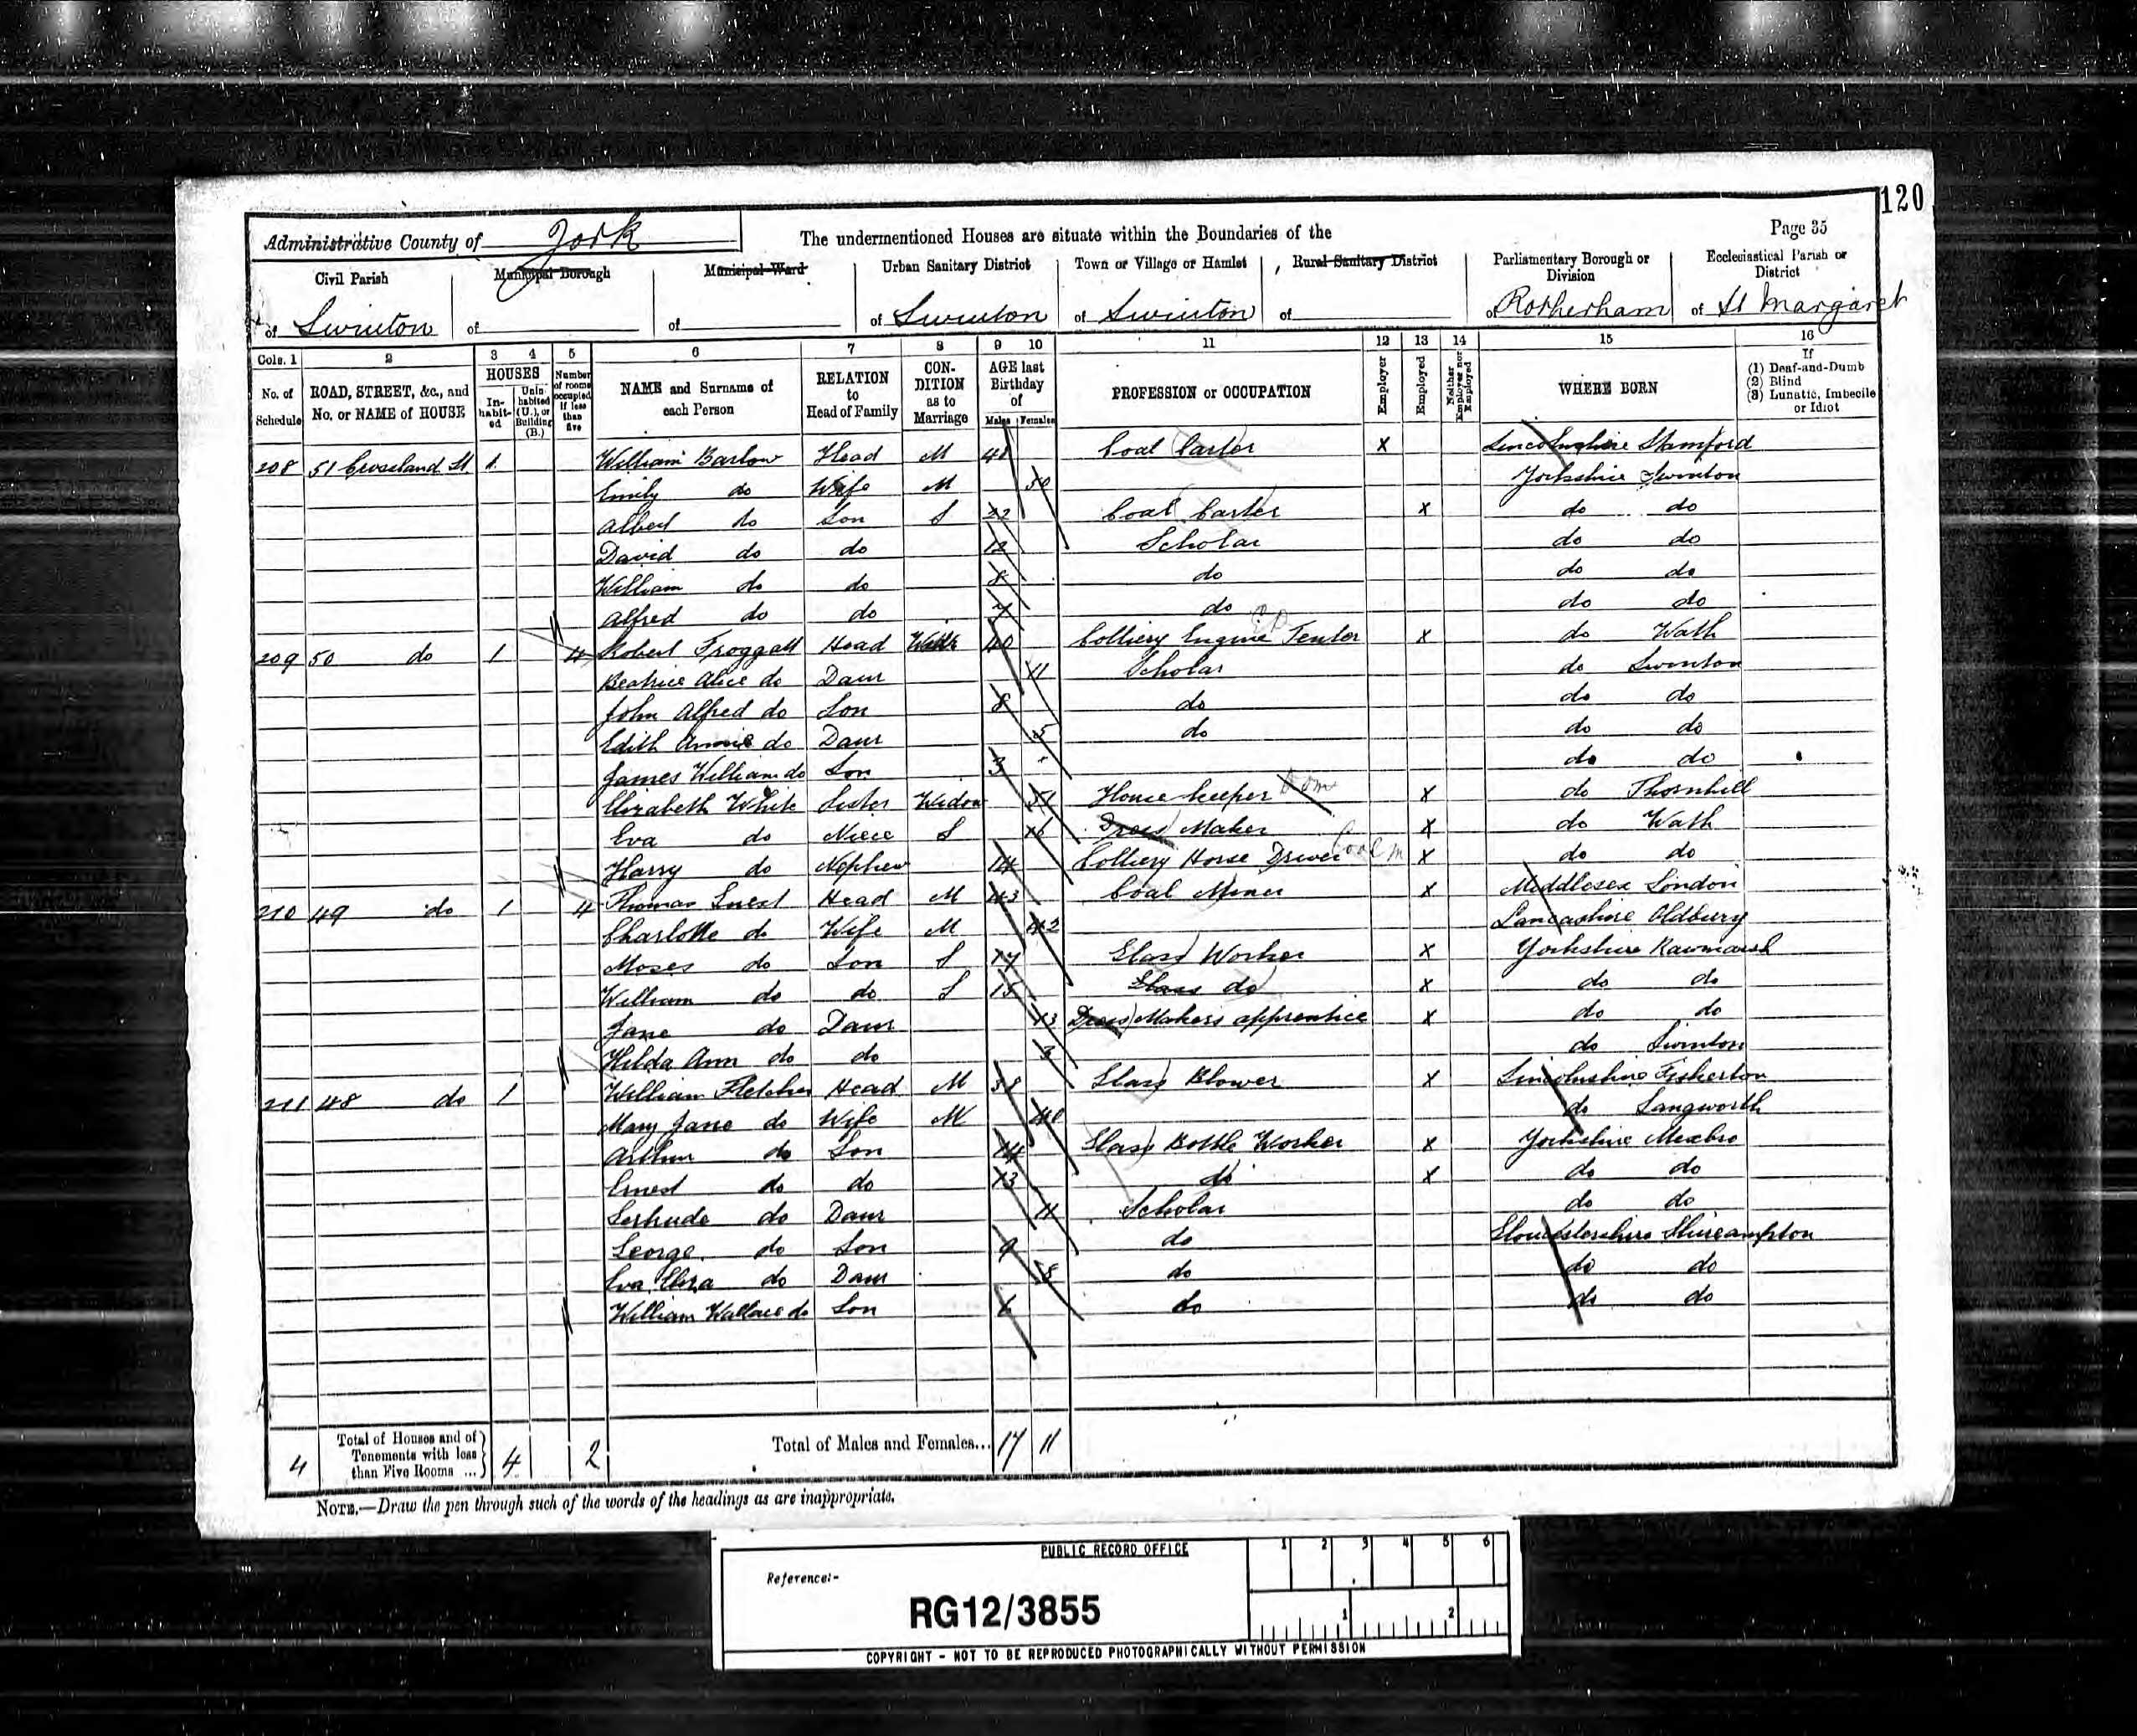 120
Administrative County of York
The undermentioned Houses are situate within the Boundaries of the
Page 35
Civil Parish
Municipal Borough
Municipal Ward
Urban Sanitary District
Town or Village or Hamlet
Rural Sanitary District
Parliamentary Borough or Division
Ecclesiastical Parish or District
of Swinton
of
of
of Swinton
of Swinton
of
of Rotherham
of St Margaret
Cols. 1 2 3 4 5 6 7 8 9 10 11 12 13 14 15 16
No. of Schedule
ROAD, STREET, &c., and No. or NAME of HOUSE
HOUSES
In-habit-ed
Unin-habited (U.), or Building (B.)
Number of rooms occupied if less than five
NAME and Surname of each Person
RELATION to Head of Family
CON-DITION as to Marriage
AGE last Birthday of
Males Females
PROFESSION or OCCUPATION
Employer
Employed
Neither Employer nor Employed
WHERE BORN
If
(1) Deaf-and-Dumb
(2) Blind
(3) Lunatic, Imbecile or Idiot
208 51 Crossland St 1 William Barlow Head M 48 Coal Carter X Lincolnshire Stamford
Emily do Wife M 50 Yorkshire Swinton
Albert do Son S 22 Coal Carter X do do
David do do 12 Scholar do do
William do do 8 do do do
Alfred do do 7 do do do
209 50 do 1 4 Robert Froggatt Head 40 Colliery Engine Tenter X do Wath
Beatrice Alice do Daur 11 Scholar do Swinton
John Alfred do Son 8 do do do
Edith Annie do Daur 5 do do do
James William do Son 3 do do
Elizabeth White Sister Widow 51 House keeper Dom X do Thornhill
Eva do Niece S 16 Dress Maker X do Wath
Harry do Nephew 14 Colliery Horse Driver Coal M X do do
210 49 do 1 4 Thomas Head M 43 Coal Miner X Middlesex London
Charlotte do Wife M 42 Lancashire Oldbury
Moses do Son S 17 Glass Worker X Yorkshire Rawmarsh
William do do S 15 Glass do X do do
Jane do Daur 13 Dress Makers apprentice X do do
Hilda Ann do do 3 do Swinton
211 48 do 1 William Fletcher Head M 38 Glass Blower X Lincolnshire Fiskerton
Mary Jane do Wife M 40 do Langworth
Arthur do Son 14 Glass Bottle Worker X Yorkshire Mexbro
Ernest do do 13 do X do do
Gertrude do Daur 11 Scholar do do
George do Son 9 do Gloucestershire Shireampton
Eva Eliza do Daur 8 do do do
William Wallace do Son 6 do do do
4 Total of Houses and of Tenements with less than Five Rooms ... 4 2 Total of Males and Females... 17 11
NOTE.—Draw the pen through such of the words of the headings as are inappropriate.
PUBLIC RECORD OFFICE
1 2 3 4 5 6
Reference:-
RG12/3855
1 2
COPYRIGHT - NOT TO BE REPRODUCED PHOTOGRAPHICALLY WITHOUT PERMISSION